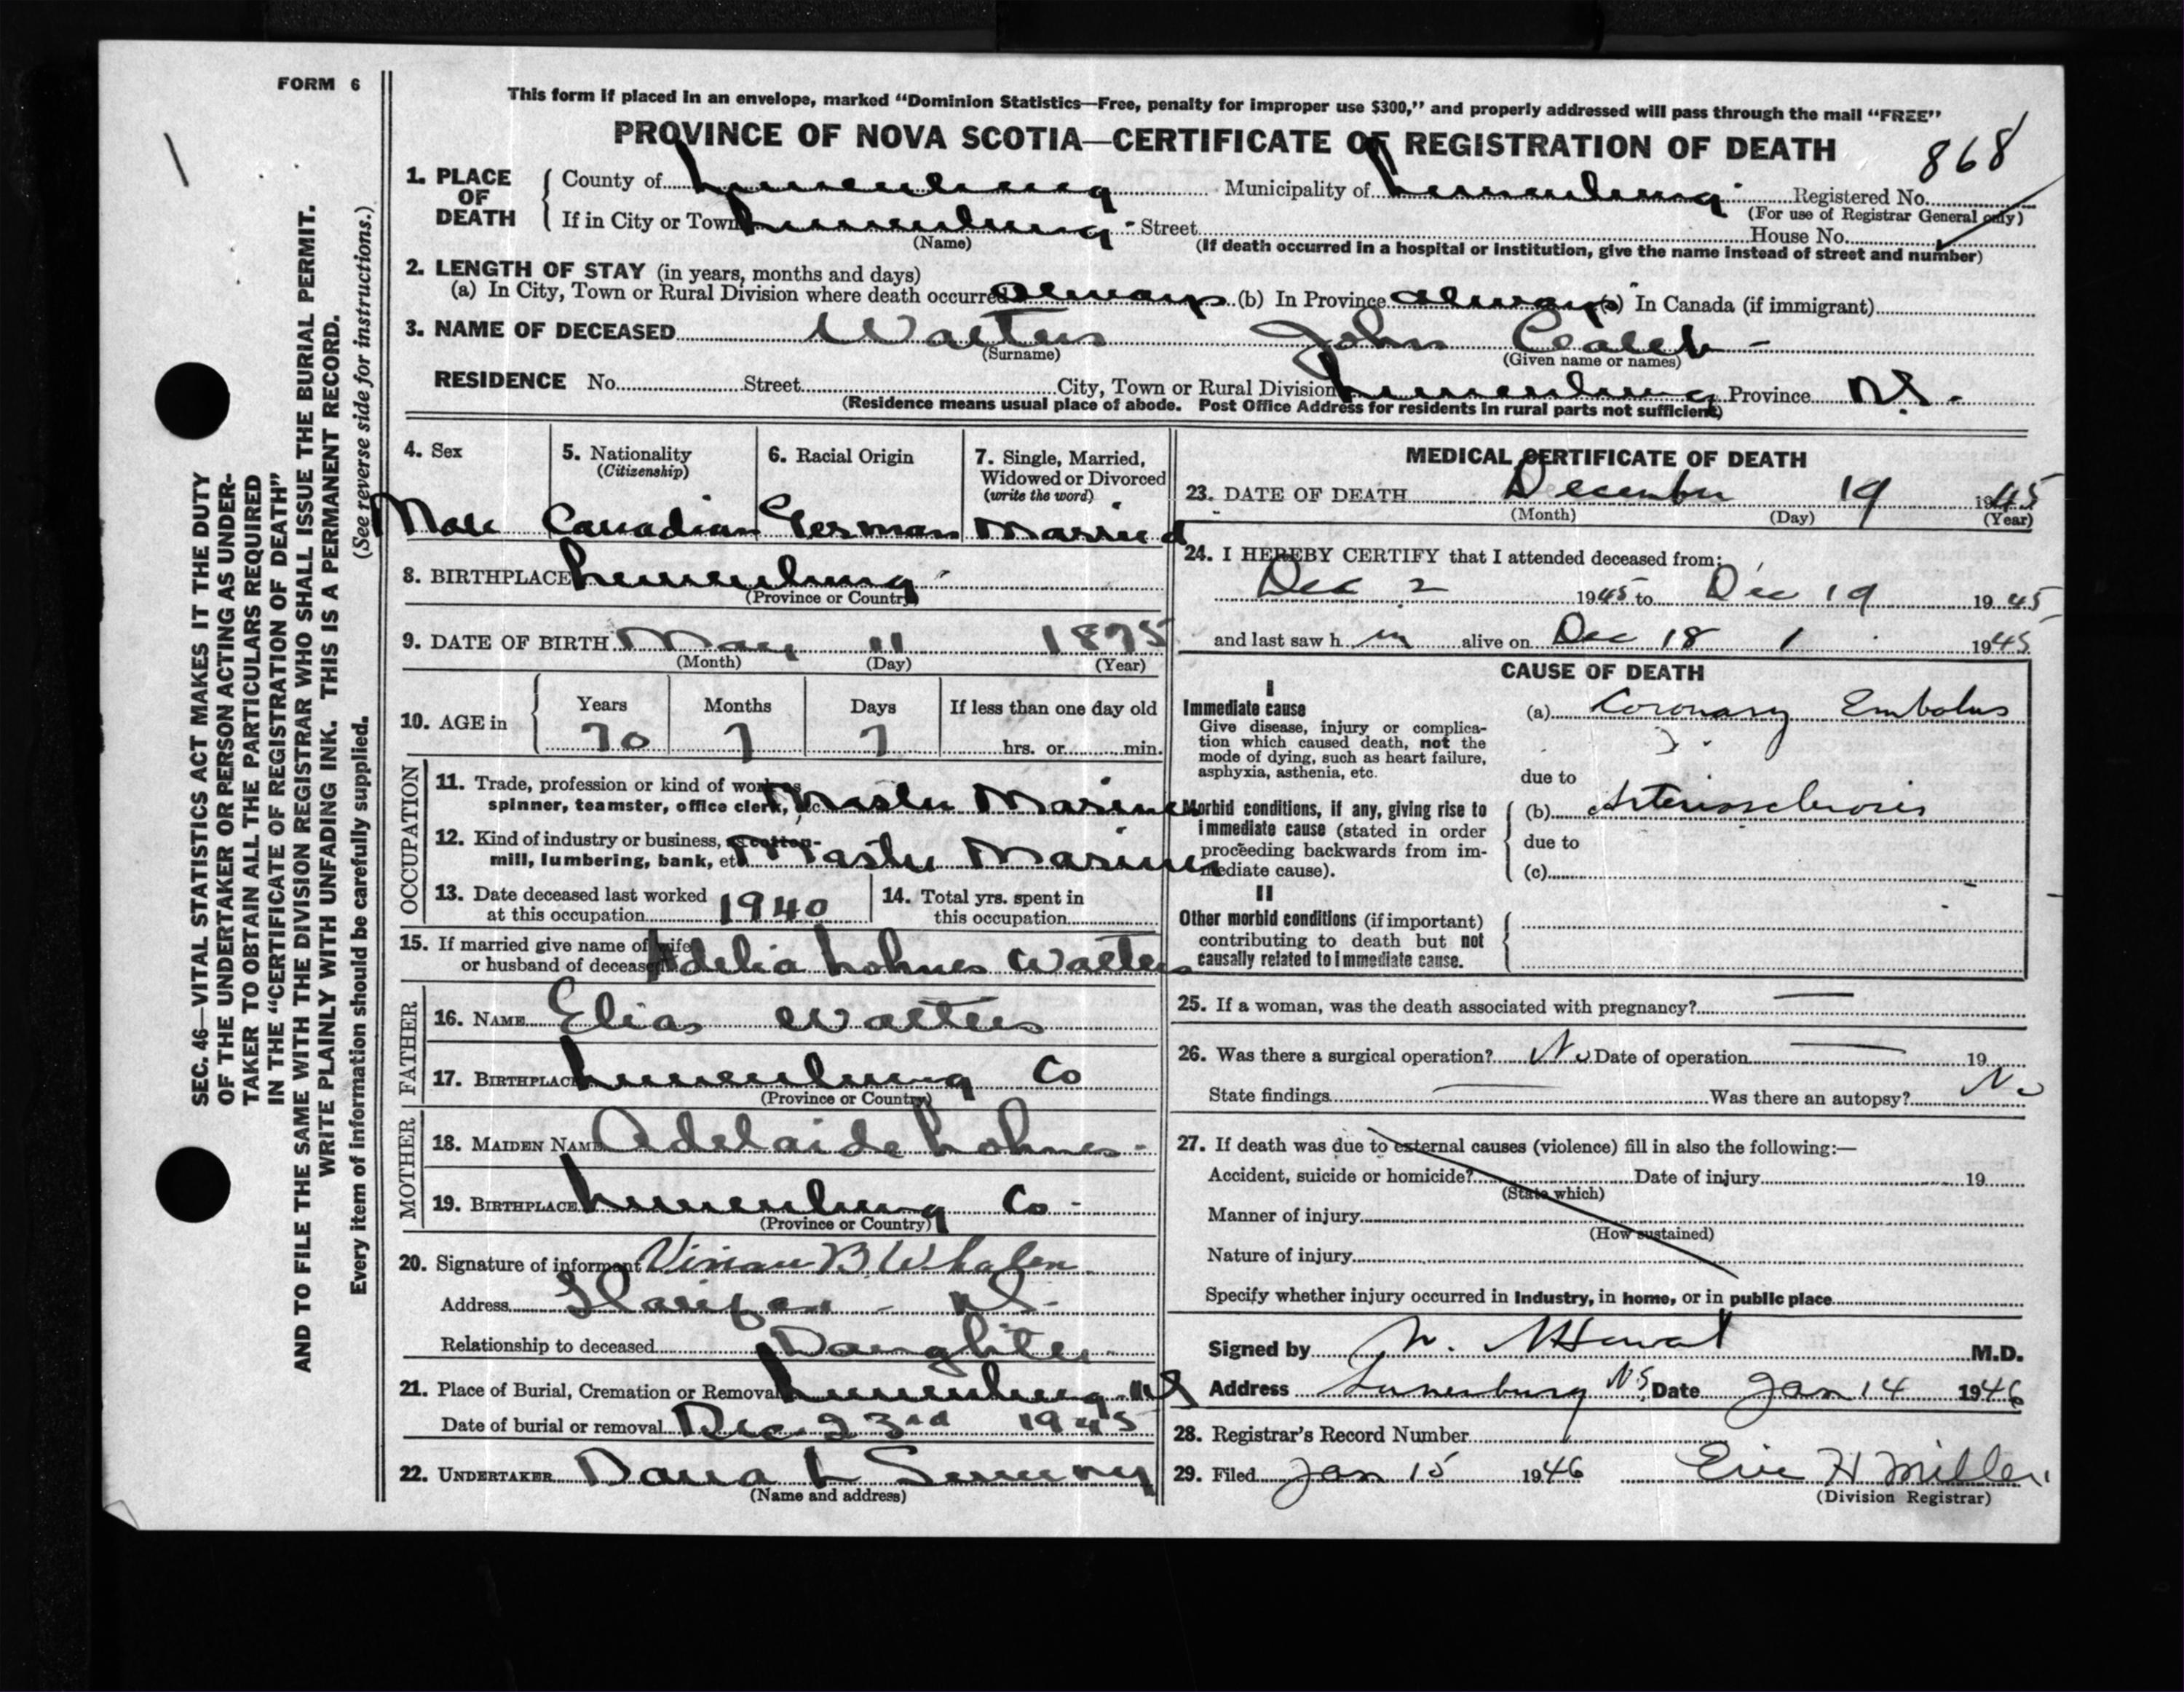 FORM 6
This form if placed in an envelope, marked “Dominion Statistics—Free, penalty for improper use $300,” and properly addressed will pass through the mail “FREE”
PROVINCE OF NOVA SCOTIA—CERTIFICATE OF REGISTRATION OF DEATH
868
1. PLACE OF DEATH
County of Lunenburg Municipality of Lunenburg Registered No.
(For use of Registrar General only)
If in City or Town Lunenburg Street House No.
(Name)
(If death occurred in a hospital or institution, give the name instead of street and number)
2. LENGTH OF STAY (in years, months and days)
(a) In City, Town or Rural Division where death occurred always (b) In Province always (c) In Canada (if immigrant)
3. NAME OF DECEASED Walters John Caleb
(Surname) (Given name or names)
RESIDENCE No. Street City, Town or Rural Division Lunenburg Province N.S.
(Residence means usual place of abode. Post Office Address for residents in rural parts not sufficient)
4. Sex
Male
5. Nationality
(Citizenship)
Canadian
6. Racial Origin
German
7. Single, Married,
Widowed or Divorced
(write the word)
Married
8. BIRTHPLACE Lunenburg
(Province or Country)
9. DATE OF BIRTH May 11 1875
(Month) (Day) (Year)
10. AGE in
Years Months Days If less than one day old
70 7 7 hrs. or min.
OCCUPATION
11. Trade, profession or kind of work, as
spinner, teamster, office clerk, etc. Master Mariner
12. Kind of industry or business, as cotton-
mill, lumbering, bank, etc. Master Mariner
13. Date deceased last worked
at this occupation 1940
14. Total yrs. spent in
this occupation
15. If married give name of wife
or husband of deceased Adelia Lohnes Walters
FATHER
16. NAME Elias Walters
17. BIRTHPLACE Lunenburg Co
(Province or Country)
MOTHER
18. MAIDEN NAME Adelaide Lohnes -
19. BIRTHPLACE Lunenburg Co -
(Province or Country)
20. Signature of informant Vivian B Whalen
Address Halifax - N.S.
Relationship to deceased Daughter
21. Place of Burial, Cremation or Removal Lunenburg NS
Date of burial or removal Dec 23rd 1945
22. UNDERTAKER Dana L Sweeny
(Name and address)
MEDICAL CERTIFICATE OF DEATH
23. DATE OF DEATH December 19 1945
(Month) (Day) (Year)
24. I HEREBY CERTIFY that I attended deceased from:
Dec 2 1945 to Dec 19 1945
and last saw h im alive on Dec 18 1945
CAUSE OF DEATH
I
Immediate cause
Give disease, injury or complica-
tion which caused death, not the
mode of dying, such as heart failure,
asphyxia, asthenia, etc.
(a) Coronary Embolus
due to
Morbid conditions, if any, giving rise to
immediate cause (stated in order
proceeding backwards from im-
mediate cause).
(b) Arteriosclerosis
due to
(c)
II
Other morbid conditions (if important)
contributing to death but not
causally related to immediate cause.
25. If a woman, was the death associated with pregnancy? —
26. Was there a surgical operation? No Date of operation — 19
State findings — Was there an autopsy? No
27. If death was due to external causes (violence) fill in also the following:—
Accident, suicide or homicide? Date of injury 19
(State which)
Manner of injury
(How sustained)
Nature of injury
Specify whether injury occurred in industry, in home, or in public place
Signed by M.D.
Address Lunenburg N.S. Date Jan 14 1946
28. Registrar's Record Number
29. Filed Jan 15 1946 Eric H Miller
(Division Registrar)
SEC. 46—VITAL STATISTICS ACT MAKES IT THE DUTY
OF THE UNDERTAKER OR PERSON ACTING AS UNDER-
TAKER TO OBTAIN ALL THE PARTICULARS REQUIRED
IN THE “CERTIFICATE OF REGISTRATION OF DEATH”
AND TO FILE THE SAME WITH THE DIVISION REGISTRAR WHO SHALL ISSUE THE BURIAL PERMIT.
WRITE PLAINLY WITH UNFADING INK. THIS IS A PERMANENT RECORD.
Every item of information should be carefully supplied. (See reverse side for instructions.)